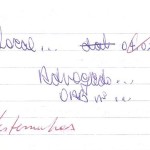 Local...
Advogado...
OAB nº...
testemunhas